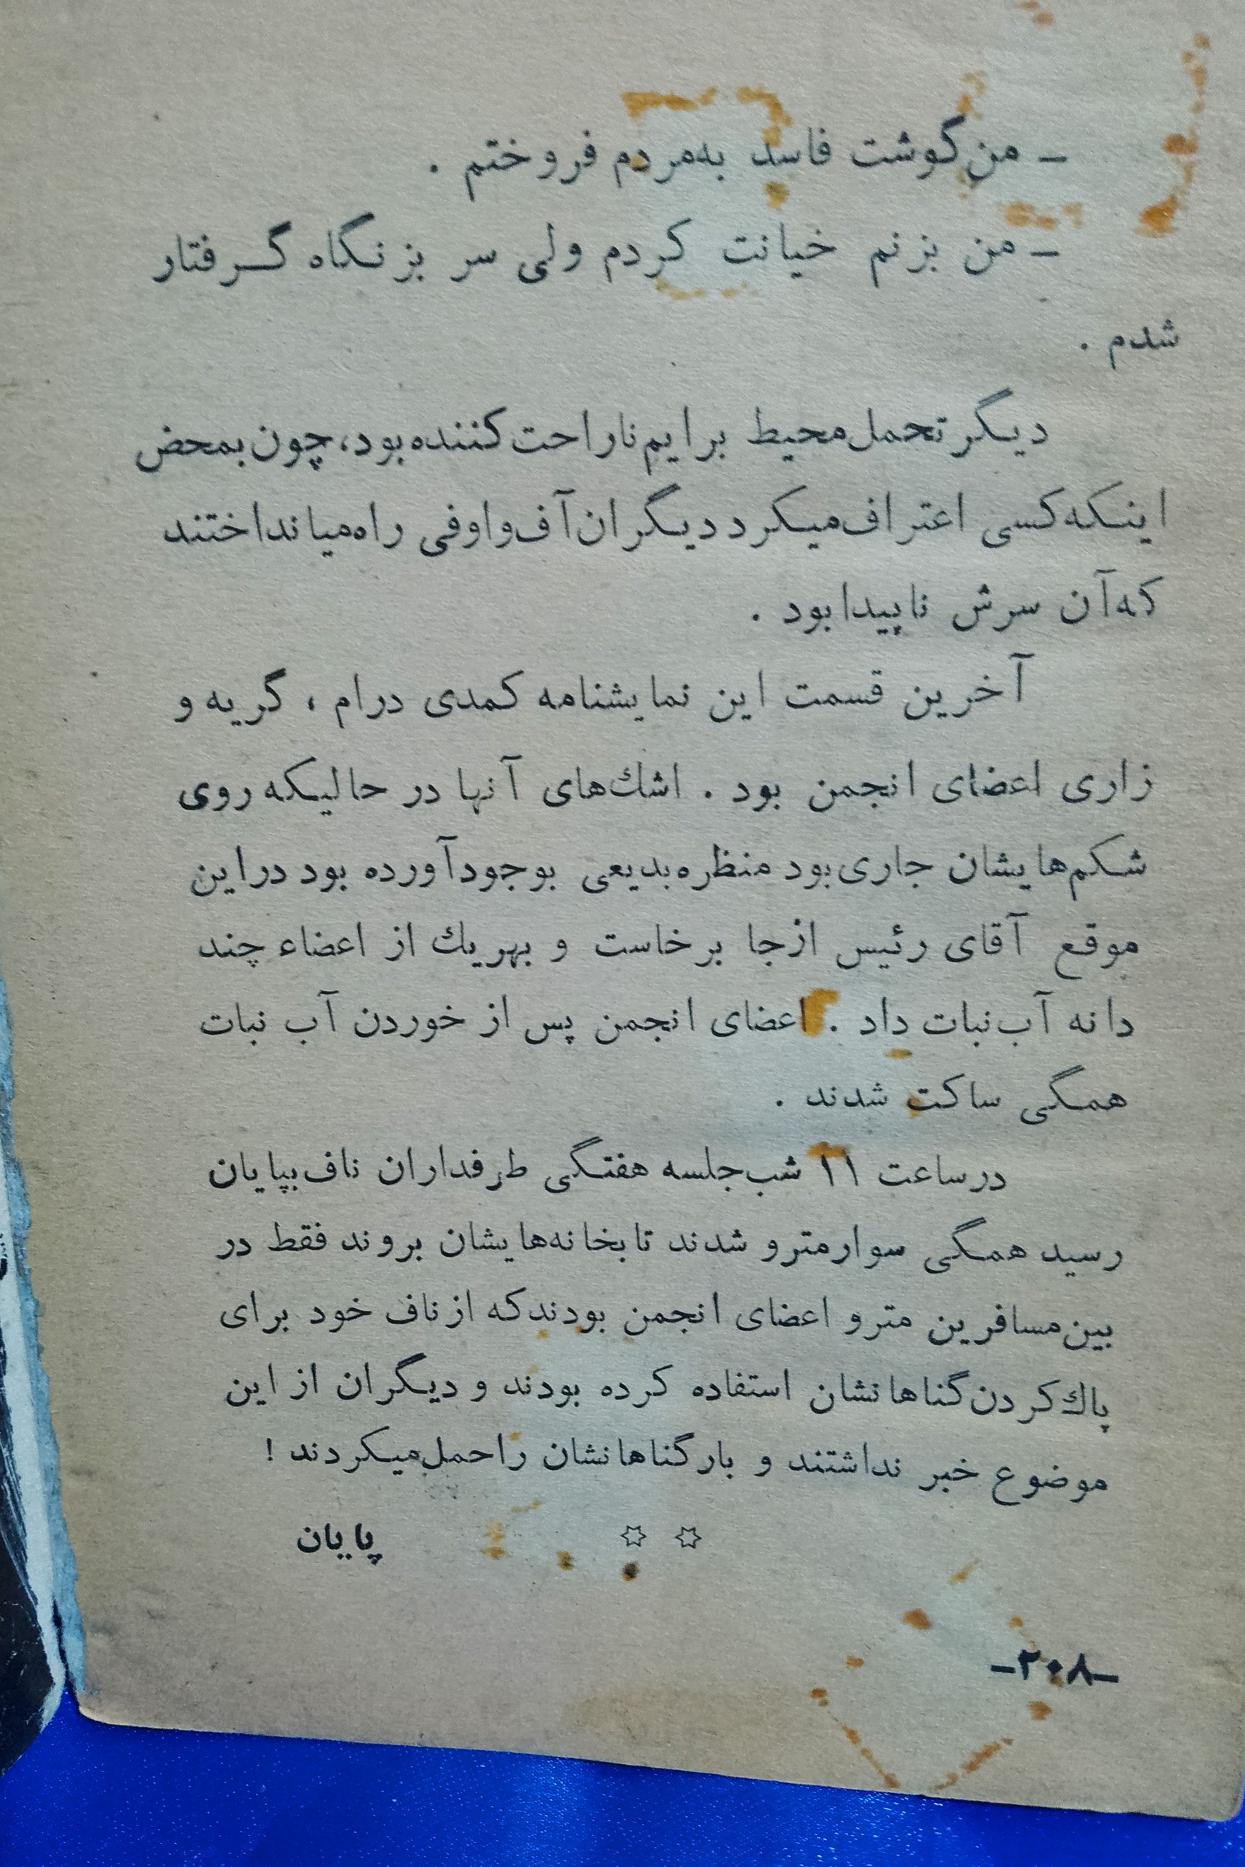 ـ من گوشت فاسد به‌مردم فروختم .
ـ من بزنم خیانت کردم ولی سر بزنگاه گـرفتار
شدم .
دیـگر تحمل محیط برایم ناراحت کننده بود، چون بمحض
اینـکه کسی اعتراف میـکرد دیـگران آف و اوفی راه میانداختند
که آن سرش ناپیدا بود .
آخرین قسمت این نمایشنامه کمدی درام ، گریه و
زاری اعضای انجمن بود . اشك‌های آنها در حالیـکه روی
شـکم‌هایشان جاری بود منظره بدیعی بوجود آورده بود دراین
موقـع آقای رئیس ازجا برخاست و بهریك از اعضاء چند
دانه آب نبات داد . اعضای انجمن پس از خوردن آب نبات
همـگی ساکت شدند .
درساعت ۱۱ شب جلسه هفتـگی طرفداران ناف بپایان
رسید همـگی سوار مترو شدند تا بخانه‌هایشان بروند فقط در
بین مسافرین مترو اعضای انجمن بودند که از ناف خود برای
پاك کردن گناهانشان استفاده کرده بودند و دیـگران از این
موضوع خبر نداشتند و بار گناهانشان را حمل میـکردند !
✡ ✡ پایان
ـ۲۰۸ـ